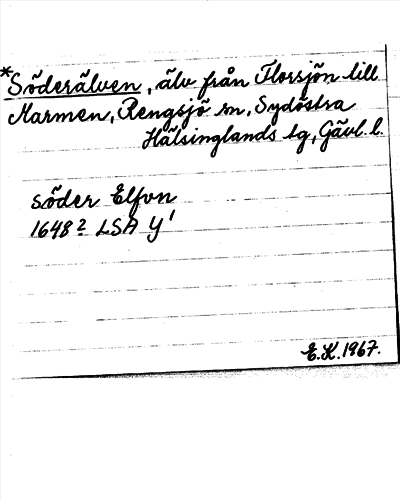 *Söderälven, älv från Florsjön till
Marmen, Rengsjö sn, Sydöstra
Hälsinglands tg, Gävl. l.
söder Elfvn
1648? LSA Y¹
E.K. 1967.